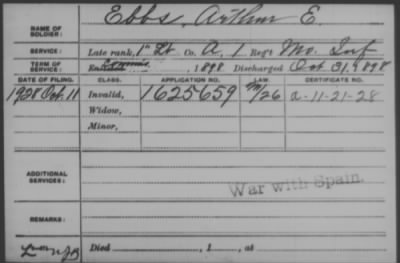 NAME OF SOLDIER: Ebbs, Arthur E.
SERVICE: Late rank, 1st Lt Co. A, 1 Reg't Mo. Inf
TERM OF SERVICE: Enlisted Commis , 1898 Discharged Oct 31, 1898
DATE OF FILING. CLASS. APPLICATION NO. LAW. CERTIFICATE NO.
1928 Oct. 11 Invalid, 1625659 M/26 a-11-21-28
Widow,
Minor,
ADDITIONAL SERVICES:
War with Spain.
REMARKS:
Died , 1 , at